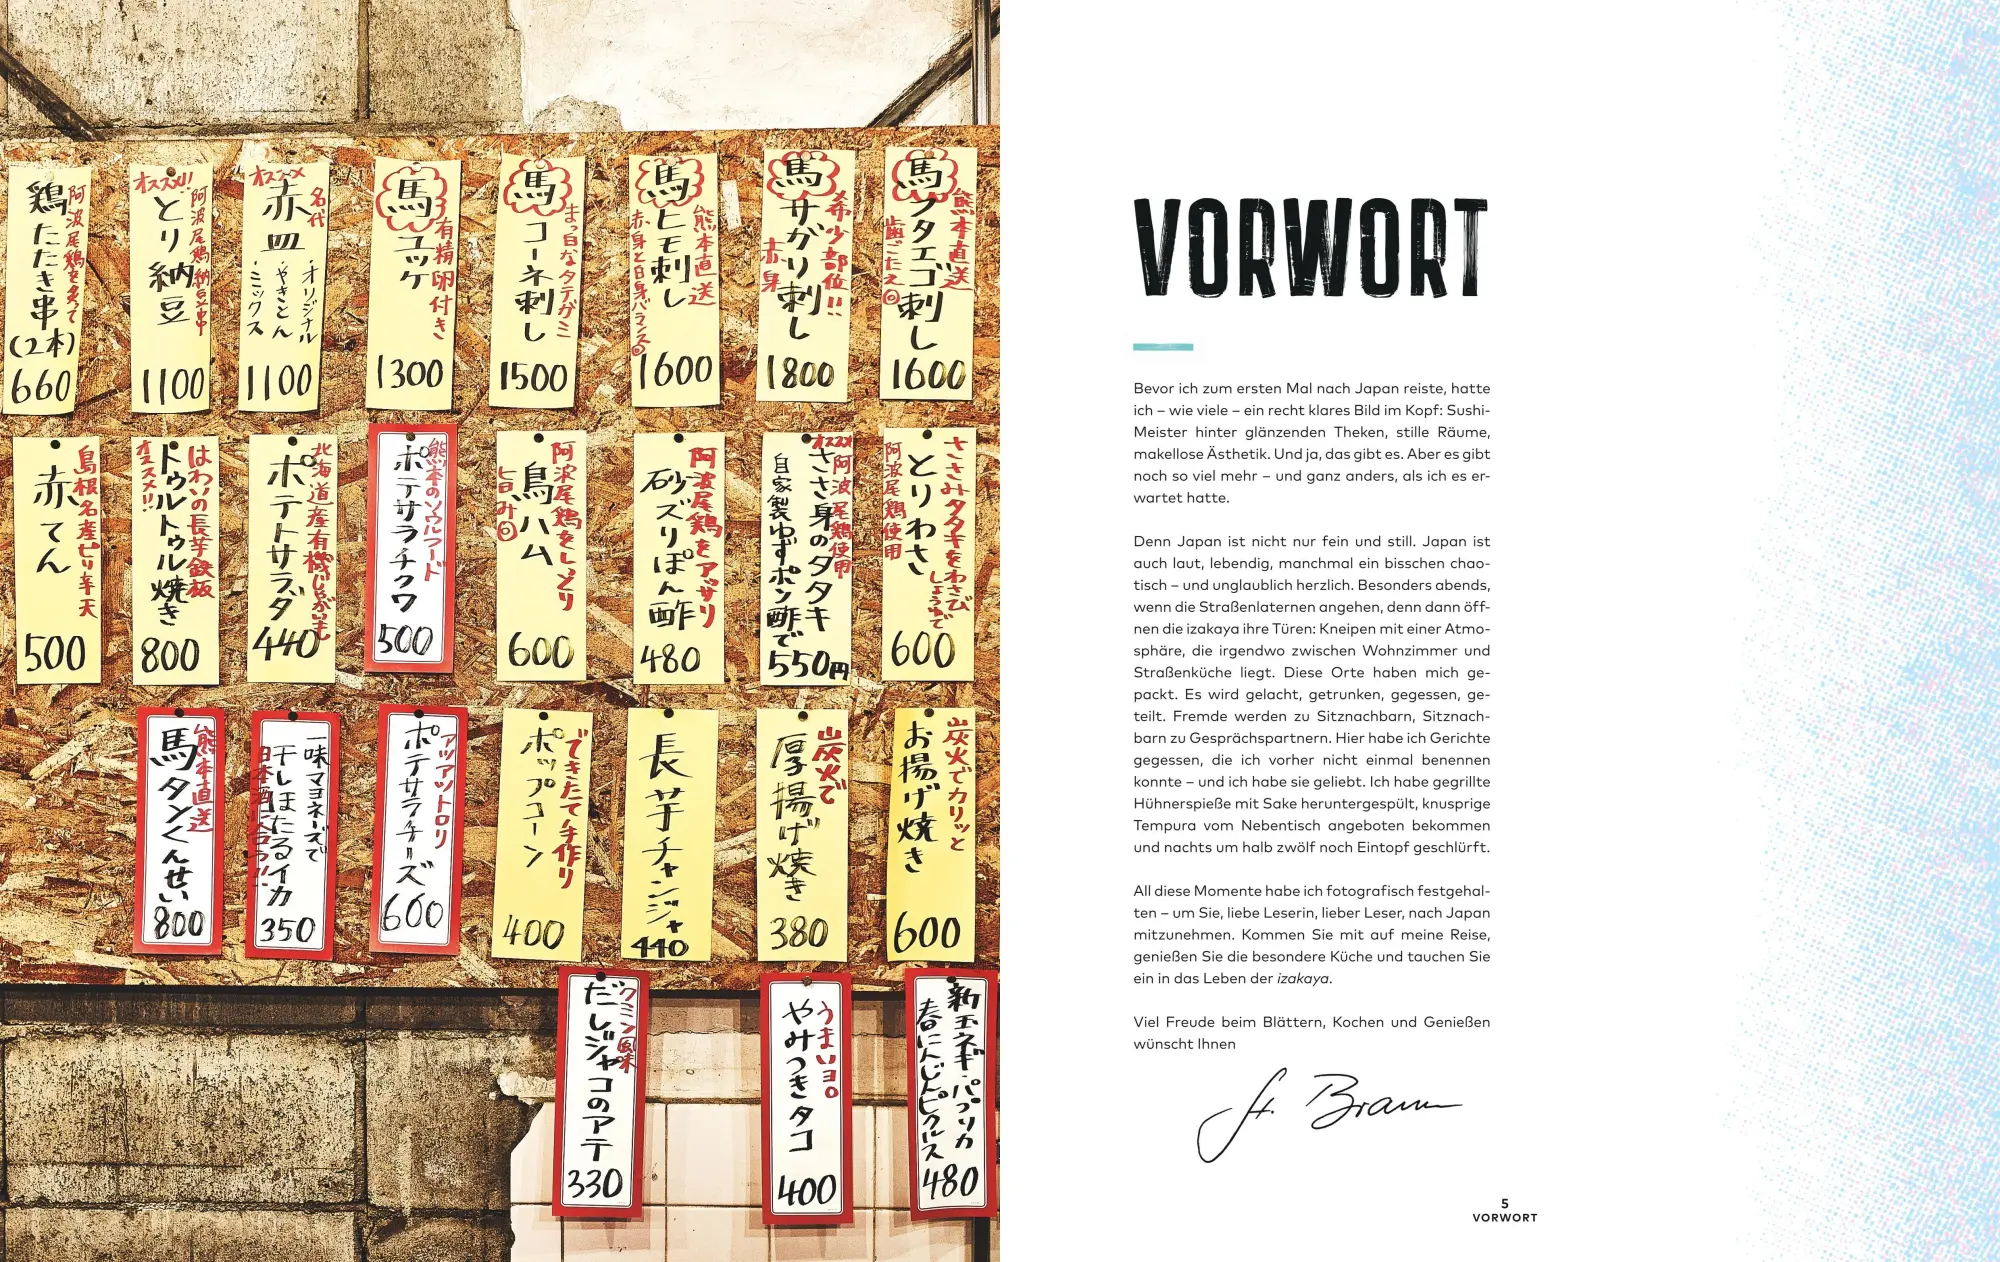 阿波尾鶏を炙って
鶏たたき串
(2本)
660
オススメ!!
阿波尾鶏納豆串
とり納豆
1100
オススメ
名代
赤皿
・オリジナル
・やきとん
・ミックス
1100
馬
有精卵付き
ユッケ
1300
馬
まっ白なタテガミ
コーネ刺し
1500
馬
熊本直送
ヒモ刺し
赤身と白身バランス◎
1600
馬
希少部位!!
サガリ刺し
赤身
1800
馬
熊本直送
フタエゴ刺し
歯ごたえ◎
1600
島根名産ピリ辛天
赤てん
500
はわいの長芋鉄板
トゥルトゥル焼き
オススメ!!
800
北海道産有機じゃがいも
ポテトサラダ
440
熊本のソウルフード
ポテサラチクワ
500
阿波尾鶏をしっとり
鳥ハム
旨み◎
600
阿波尾鶏をアッサリ
砂ズリぽん酢
480
オススメ
阿波尾鶏使用
ささ身のタタキ
自家製ゆずポン酢で
550円
ささみタタキをわさび
しょうゆで
とりわさ
阿波尾鶏使用
600
熊本直送
馬タンくんせい
800
一味マヨネーズで
干しほたるイカ
350
アッツアツトロリ
ポテサラチーズ
600
できたて手作り
ポップコーン
400
長芋チャンジャ
440
炭火で
厚揚げ焼き
380
炭火でカリッと
お揚げ焼き
600
クミン風味
だしジャコのアテ
330
うまいヨロ
やみつきタコ
400
新玉ネギ・パプリカ
春にんじんピクルス
480
VORWORT
Bevor ich zum ersten Mal nach Japan reiste, hatte
ich – wie viele – ein recht klares Bild im Kopf: Sushi-
Meister hinter glänzenden Theken, stille Räume,
makellose Ästhetik. Und ja, das gibt es. Aber es gibt
noch so viel mehr – und ganz anders, als ich es er-
wartet hatte.
Denn Japan ist nicht nur fein und still. Japan ist
auch laut, lebendig, manchmal ein bisschen chao-
tisch – und unglaublich herzlich. Besonders abends,
wenn die Straßenlaternen angehen, denn dann öff-
nen die izakaya ihre Türen: Kneipen mit einer Atmo-
sphäre, die irgendwo zwischen Wohnzimmer und
Straßenküche liegt. Diese Orte haben mich ge-
packt. Es wird gelacht, getrunken, gegessen, ge-
teilt. Fremde werden zu Sitznachbarn, Sitznach-
barn zu Gesprächspartnern. Hier habe ich Gerichte
gegessen, die ich vorher nicht einmal benennen
konnte – und ich habe sie geliebt. Ich habe gegrillte
Hühnerspieße mit Sake heruntergespült, knusprige
Tempura vom Nebentisch angeboten bekommen
und nachts um halb zwölf noch Eintopf geschlürft.
All diese Momente habe ich fotografisch festgehal-
ten – um Sie, liebe Leserin, lieber Leser, nach Japan
mitzunehmen. Kommen Sie mit auf meine Reise,
genießen Sie die besondere Küche und tauchen Sie
ein in das Leben der izakaya.
Viel Freude beim Blättern, Kochen und Genießen
wünscht Ihnen
St. Braun
5
VORWORT